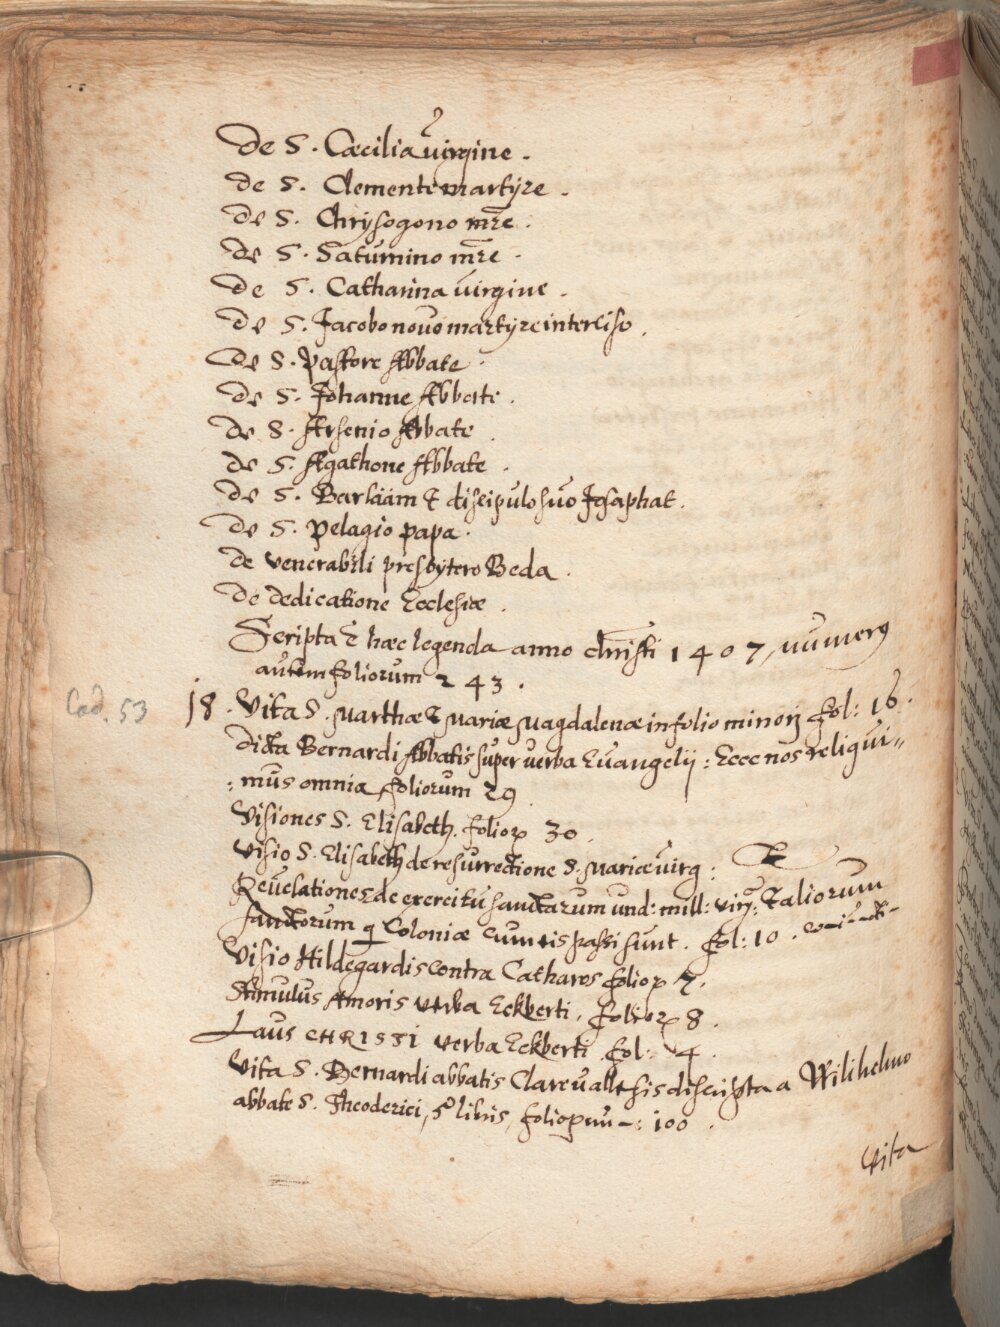 de S. Cæcilia virgine.
de S. Clemente martyre.
de S. Chrysogono mr̃e.
de S. Saturnino mr̃e.
de S. Catharina virgine.
de S. Jacobo novo martyre interciso.
de S. Pastore Abbate.
de S. Johanne Abbate.
de S. Arsenio Abbate.
de S. Agathone Abbate.
de S. Barlaam & discipulo suo Josaphat.
de S. Pelagio papa.
de venerabili presbytero Beda.
de dedicatione Ecclesiæ.
Scripta & hæc legenda anno christi 1407, numerꝰ
autem foliorum 243.
Cod. 53 18. Vita S. Marthæ & Mariæ Magdalenæ in folio minorj fol: 16.
Dicta Bernardi Abbatis super verba Evangelij: Ecce nos reliqui„
:mus omnia, foliorum 29
Visiones S. Elisabeth. folioꝝ 30.
Visio S. Elisabeth de resurrectione S. Mariæ virg: &
Revelationes de exercitu sanctarum und: mill: virg: & aliorum
sanctorum q Coloniæ cum eis passi sunt. fol: 10.
Visio Hildegardis contra Catharos folioꝝ 7.
Stimulus Amoris verba Eckberti, folioꝝ 8.
Laus CHRISTI verba Eckberti fol: 4.
Vita S. Bernardi abbatis Clarevallēsis descripta a Wilihelmo
abbate S. Theoderici, 5 libris, folioꝝ 100.
Vita